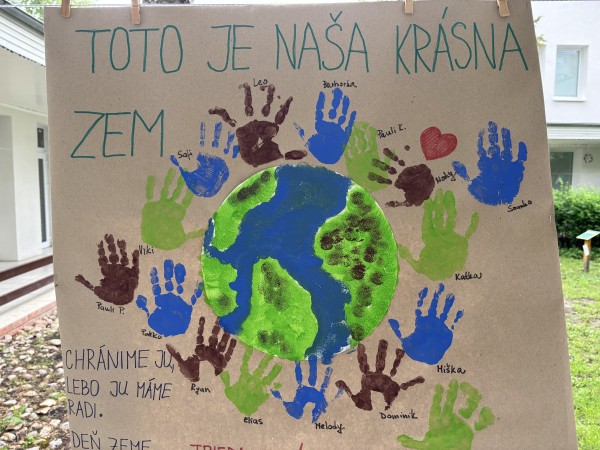 TOTO JE NAŠA KRÁSNA
ZEM
Leo
Barborka
Pauli K.
Saji
Noky
Samko
Viki
Katka
Pauli P.
Palko
Miška
Ryan
elias
Melody
Dominik
CHRÁNIME JU,
LEBO JU MÁME
RADI.
DEŇ ZEME